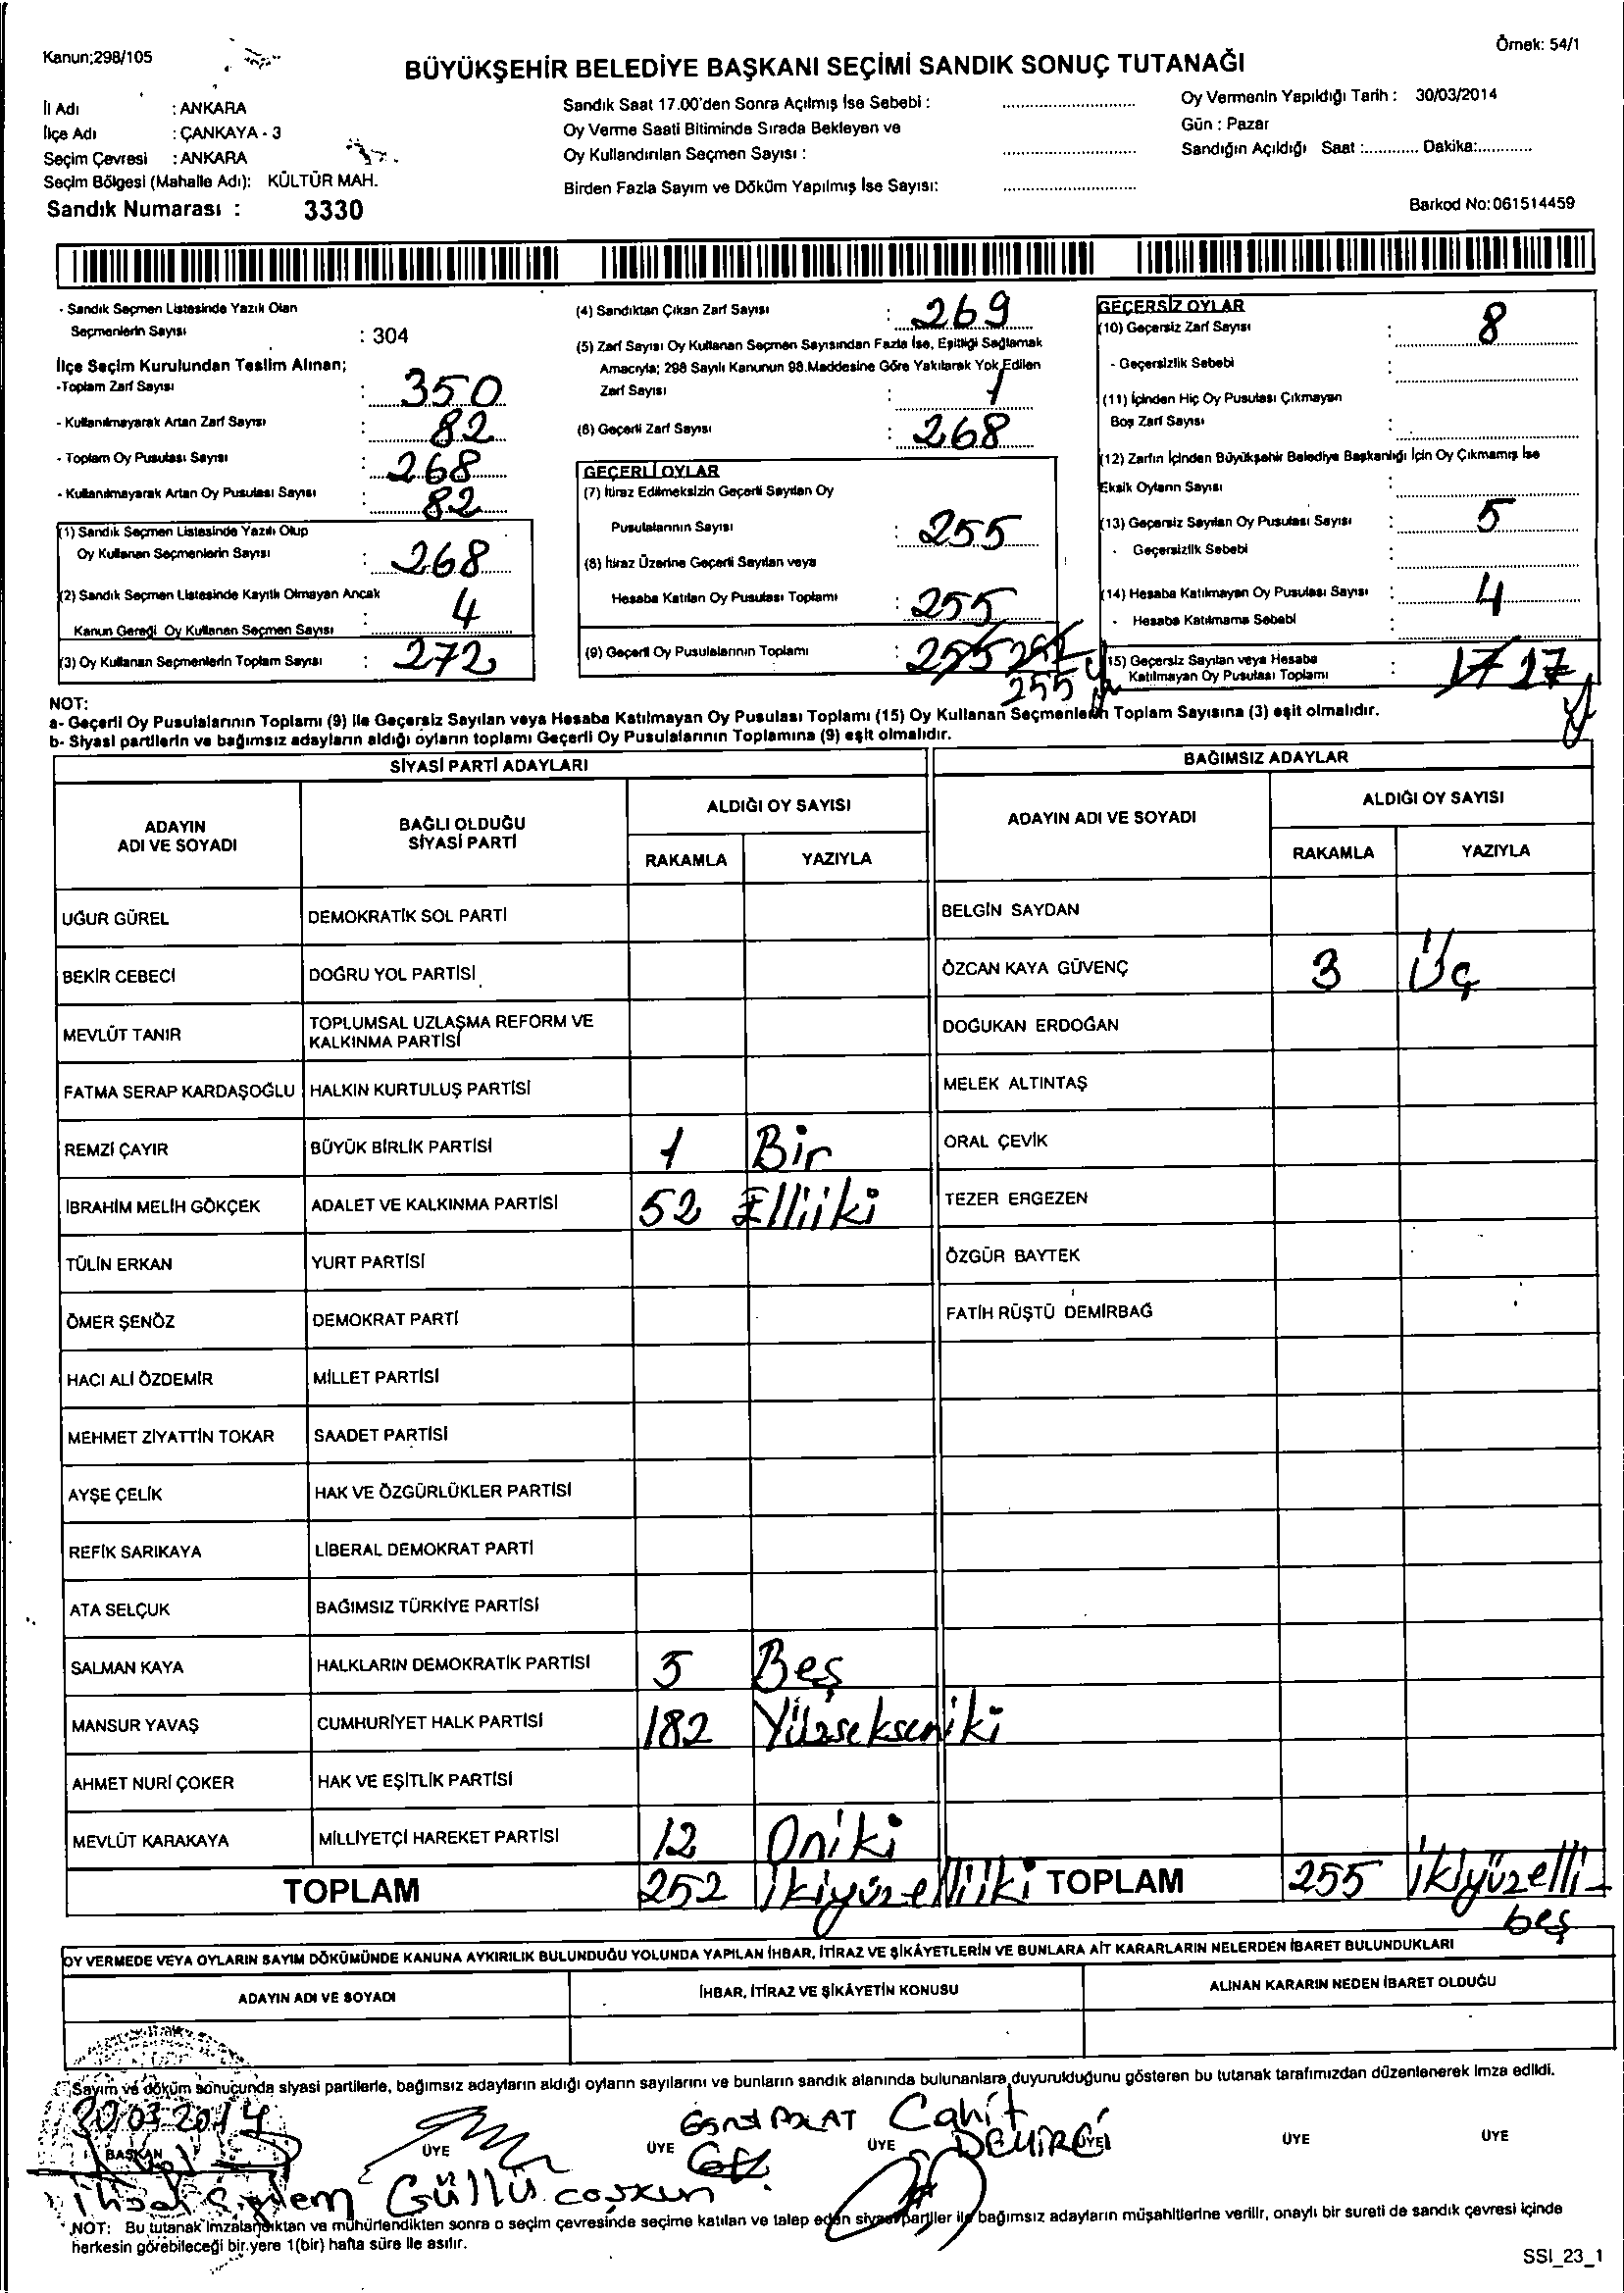 Kanun;298/105
Örnek: 54/1
BÜYÜKŞEHİR BELEDİYE BAŞKANI SEÇİMİ SANDIK SONUÇ TUTANAĞI
İl Adı : ANKARA
İlçe Adı : ÇANKAYA - 3
Seçim Çevresi : ANKARA
Seçim Bölgesi (Mahalle Adı): KÜLTÜR MAH.
Sandık Numarası : 3330
Sandık Saat 17.00'den Sonra Açılmış İse Sebebi :
Oy Verme Saati Bitiminde Sırada Bekleyen ve
Oy Kullandırılan Seçmen Sayısı :
Birden Fazla Sayım ve Döküm Yapılmış İse Sayısı:
Oy Vermenin Yapıldığı Tarih : 30/03/2014
Gün : Pazar
Sandığın Açıldığı Saat :............ Dakika:............
Barkod No:061514459
- Sandık Seçmen Listesinde Yazılı Olan
Seçmenlerin Sayısı : 304
İlçe Seçim Kurulundan Teslim Alınan;
-Toplam Zarf Sayısı : 350
- Kullanılmayarak Artan Zarf Sayısı : 82
- Toplam Oy Pusulası Sayısı : 268
- Kullanılmayarak Artan Oy Pusulası Sayısı : 82
(1) Sandık Seçmen Listesinde Yazılı Olup
Oy Kullanan Seçmenlerin Sayısı : 268
(2) Sandık Seçmen Listesinde Kayıtlı Olmayan Ancak
Kanun Gereği Oy Kullanan Seçmen Sayısı : 4
(3) Oy Kullanan Seçmenlerin Toplam Sayısı : 272
(4) Sandıktan Çıkan Zarf Sayısı : 269
(5) Zarf Sayısı Oy Kullanan Seçmen Sayısından Fazla İse, Eşitliği Sağlamak
Amacıyla; 298 Sayılı Kanunun 98.Maddesine Göre Yakılarak Yok Edilen
Zarf Sayısı : 1
(6) Geçerli Zarf Sayısı : 268
GEÇERLİ OYLAR
(7) İtiraz Edilmeksizin Geçerli Sayılan Oy
Pusulalarının Sayısı : 255
(8) İtiraz Üzerine Geçerli Sayılan veya
Hesaba Katılan Oy Pusulası Toplamı : 255
(9) Geçerli Oy Pusulalarının Toplamı : 255
255
GEÇERSİZ OYLAR
(10) Geçersiz Zarf Sayısı : 8
- Geçersizlik Sebebi :
(11) İçinden Hiç Oy Pusulası Çıkmayan
Boş Zarf Sayısı :
(12) Zarfın İçinden Büyükşehir Belediye Başkanlığı İçin Oy Çıkmamış İse
Eksik Oyların Sayısı :
(13) Geçersiz Sayılan Oy Pusulası Sayısı : 5
- Geçersizlik Sebebi :
(14) Hesaba Katılmayan Oy Pusulası Sayısı : 4
- Hesaba Katılmama Sebebi :
(15) Geçersiz Sayılan veya Hesaba
Katılmayan Oy Pusulası Toplamı : 17 17
NOT:
a- Geçerli Oy Pusulalarının Toplamı (9) ile Geçersiz Sayılan veya Hesaba Katılmayan Oy Pusulası Toplamı (15) Oy Kullanan Seçmenlerin Toplam Sayısına (3) eşit olmalıdır.
b- Siyasi partilerin ve bağımsız adayların aldığı oyların toplamı Geçerli Oy Pusulalarının Toplamına (9) eşit olmalıdır.
SİYASİ PARTİ ADAYLARI
BAĞIMSIZ ADAYLAR
ADAYIN
ADI VE SOYADI
BAĞLI OLDUĞU
SİYASİ PARTİ
ALDIĞI OY SAYISI
RAKAMLA YAZIYLA
ADAYIN ADI VE SOYADI
ALDIĞI OY SAYISI
RAKAMLA YAZIYLA
UĞUR GÜREL DEMOKRATİK SOL PARTİ BELGİN SAYDAN
BEKİR CEBECİ DOĞRU YOL PARTİSİ ÖZCAN KAYA GÜVENÇ 3 Üç
MEVLÜT TANIR TOPLUMSAL UZLAŞMA REFORM VE
KALKINMA PARTİSİ DOĞUKAN ERDOĞAN
FATMA SERAP KARDAŞOĞLU HALKIN KURTULUŞ PARTİSİ MELEK ALTINTAŞ
REMZİ ÇAYIR BÜYÜK BİRLİK PARTİSİ 1 Bir ORAL ÇEVİK
İBRAHİM MELİH GÖKÇEK ADALET VE KALKINMA PARTİSİ 52 Elliiki TEZER ERGEZEN
TÜLİN ERKAN YURT PARTİSİ ÖZGÜR BAYTEK
ÖMER ŞENÖZ DEMOKRAT PARTİ FATİH RÜŞTÜ DEMİRBAĞ
HACI ALİ ÖZDEMİR MİLLET PARTİSİ
MEHMET ZİYATTİN TOKAR SAADET PARTİSİ
AYŞE ÇELİK HAK VE ÖZGÜRLÜKLER PARTİSİ
REFİK SARIKAYA LİBERAL DEMOKRAT PARTİ
ATA SELÇUK BAĞIMSIZ TÜRKİYE PARTİSİ
SALMAN KAYA HALKLARIN DEMOKRATİK PARTİSİ 5 Beş
MANSUR YAVAŞ CUMHURİYET HALK PARTİSİ 182 Yüzsekseniki
AHMET NURİ ÇOKER HAK VE EŞİTLİK PARTİSİ
MEVLÜT KARAKAYA MİLLİYETÇİ HAREKET PARTİSİ 12 Oniki
TOPLAM 252 İkiyüzelliiki TOPLAM 255 İkiyüzelli-
beş
OY VERMEDE VEYA OYLARIN SAYIM DÖKÜMÜNDE KANUNA AYKIRILIK BULUNDUĞU YOLUNDA YAPILAN İHBAR, İTİRAZ VE ŞİKÂYETLERİN VE BUNLARA AİT KARARLARIN NELERDEN İBARET BULUNDUKLARI
ADAYIN ADI VE SOYADI İHBAR, İTİRAZ VE ŞİKÂYETİN KONUSU ALINAN KARARIN NEDEN İBARET OLDUĞU
Sayım ve döküm sonucunda siyasi partilerle, bağımsız adayların aldığı oyların sayılarını ve bunların sandık alanında bulunanlara duyurulduğunu gösteren bu tutanak tarafımızdan düzenlenerek imza edildi.
30.03.2014 POLAT Cahit
DEMİRCİ
BAŞKAN ÜYE ÜYE ÜYE ÜYE ÜYE ÜYE
Güllü coşkun
NOT: Bu tutanak imzalandıktan ve mühürlendikten sonra o seçim çevresinde seçime katılan ve talep eden siyasi partiler ile bağımsız adayların müşahitlerine verilir, onaylı bir sureti de sandık çevresi içinde
herkesin görebileceği bir yere 1(bir) hafta süre ile asılır.
SSI_23_1